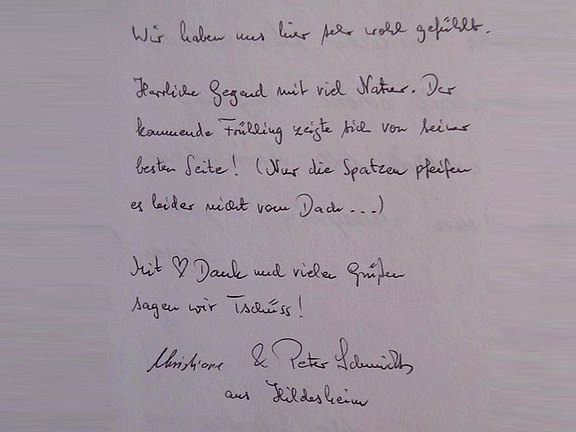 Wir haben uns hier sehr wohl gefühlt.
Herrliche Gegend mit viel Natur. Der
kommende Frühling zeigte sich von seiner
besten Seite! (Nur die Spatzen pfeifen
es leider nicht vom Dach...)
Mit ♡ Dank und vielen Grüßen
sagen wir Tschüss!
Christiane & Peter Schmidt
aus Hildesheim